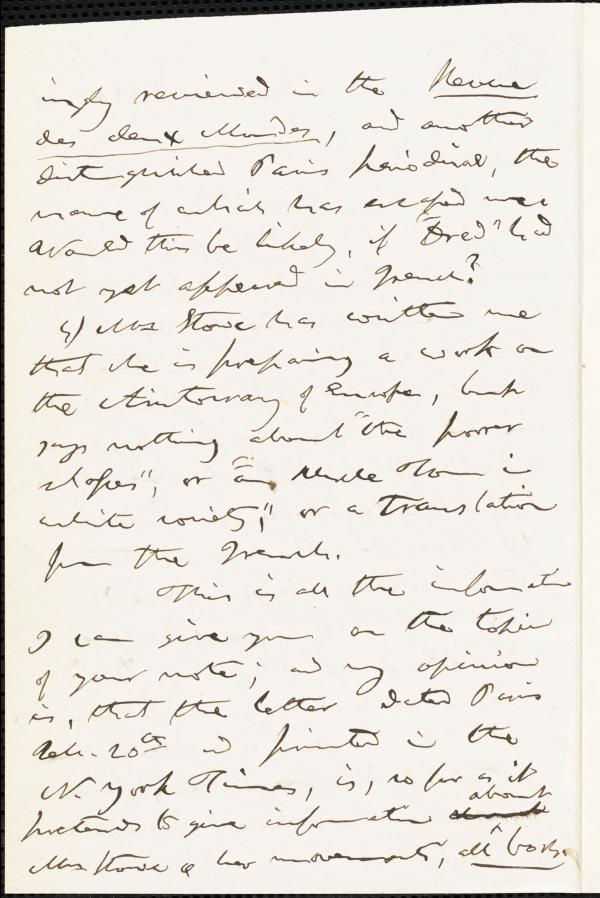 ingly reviewed in the Revue
des deux Mondes, and another
distinguished Paris periodical, the
name of which has escaped me.
Would this be likely, if "Dred" had
not yet appeared in French?
4) Mrs Stowe has written me
that she is preparing a work on
the Aristocracy of Europe, but
says nothing about "the poorer
classes", or "an Uncle Tom in
white society", or a translation
from the French.
This is all the information
I can give you on the topic
of your note; and my opinion
is, that the letter dated Paris
Feb. 20th and printed in the
N. York Times, is, so far as it
pretends to give information about
Mrs Stowe & her movements, all